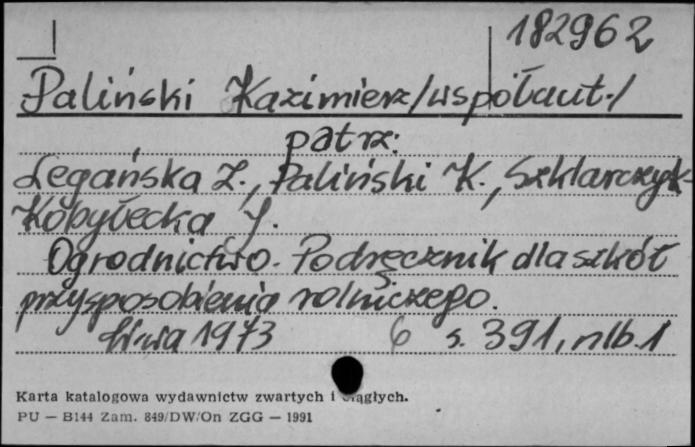 182962
Paliński Kazimierz /współaut./
patrz:
Legańska Z., Paliński K., Szklarczyk-
Kobyłecka J.
Ogrodnictwo. Podręcznik dla szkół
przysposobienia rolniczego.
1973 6 s. 391, nlb. 1
Karta katalogowa wydawnictw zwartych i ciągłych.
PU — B144 Zam. 849/DW/On ZGG — 1991